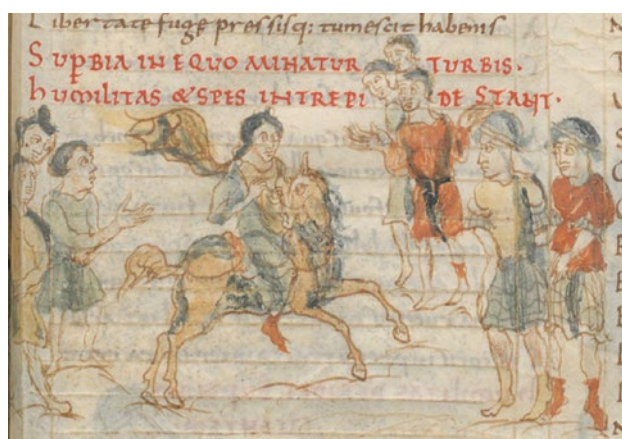 Libertate fuge pressisq: tumescit habenis
SUPBIA IN EQUO MINATUR TURBIS.
hUMILITAS & SPES INTREPI DE STANT.